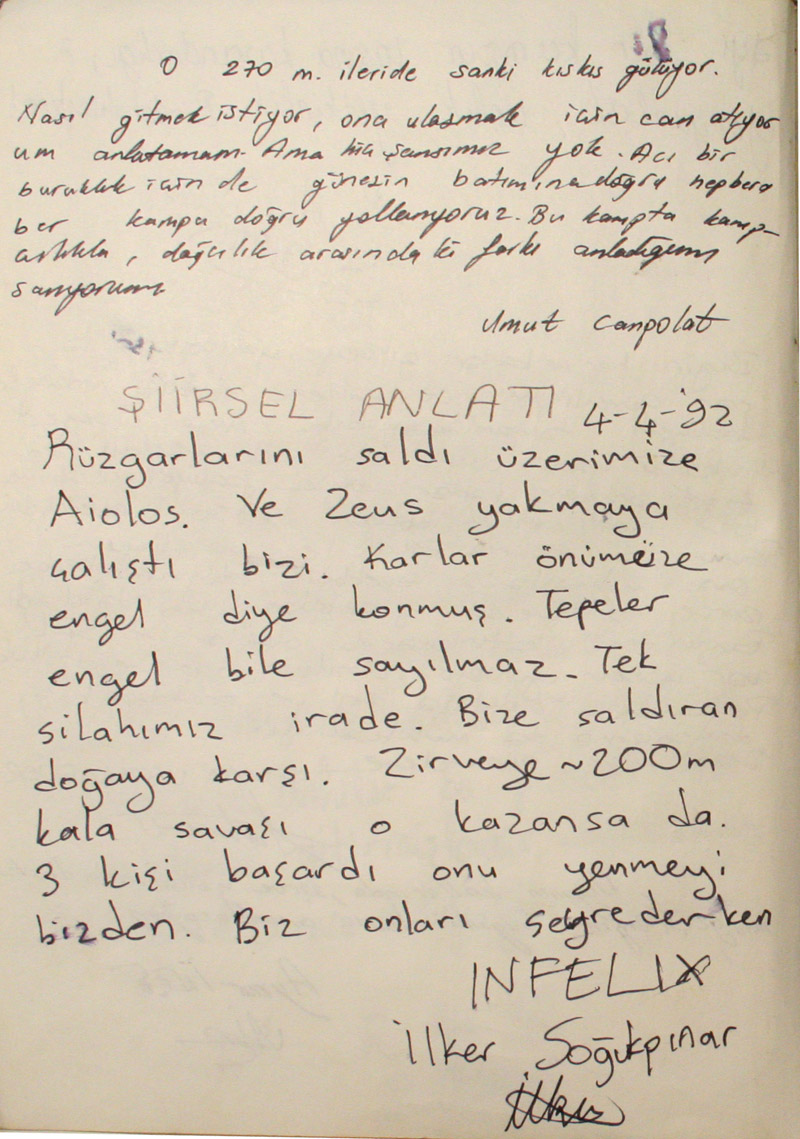 O 270 m. ileride sanki kıskıs gülüyor.
Nasıl gitmek istiyor, ona ulaşmak için can atıyor
um anlatamam. Ama hiç şansımız yok. Acı bir
burukluk içinde güneşin batımına doğru hepbera
ber kampa doğru yollanıyoruz. Bu kampta kamp-
çılıkla, dağcılık arasındaki farkı anladığımı
sanıyorum
Umut Canpolat
ŞİİRSEL ANLATI 4-4-'92
Rüzgarlarını saldı üzerimize
Aiolos. Ve Zeus yakmaya
çalıştı bizi. Karlar önümüze
engel diye konmuş. Tepeler
engel bile sayılmaz. Tek
silahımız irade. Bize saldıran
doğaya karşı. Zirveye ~200m
kala savaşı o kazansa da.
3 kişi başardı onu yenmeyi
bizden. Biz onları seyrederken
INFELIX
İlker Soğukpınar